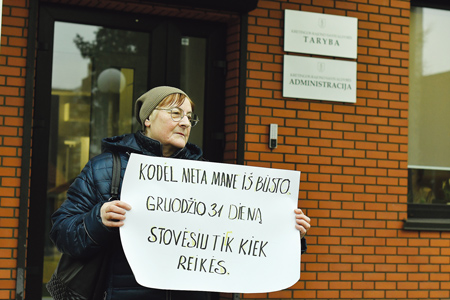 TARYBA
ADMINISTRACIJA
KODĖL META MANE IŠ BŪSTO.
GRUODŽIO 31 DIENĄ
STOVĖSIU TIK KIEK
REIKĖS.